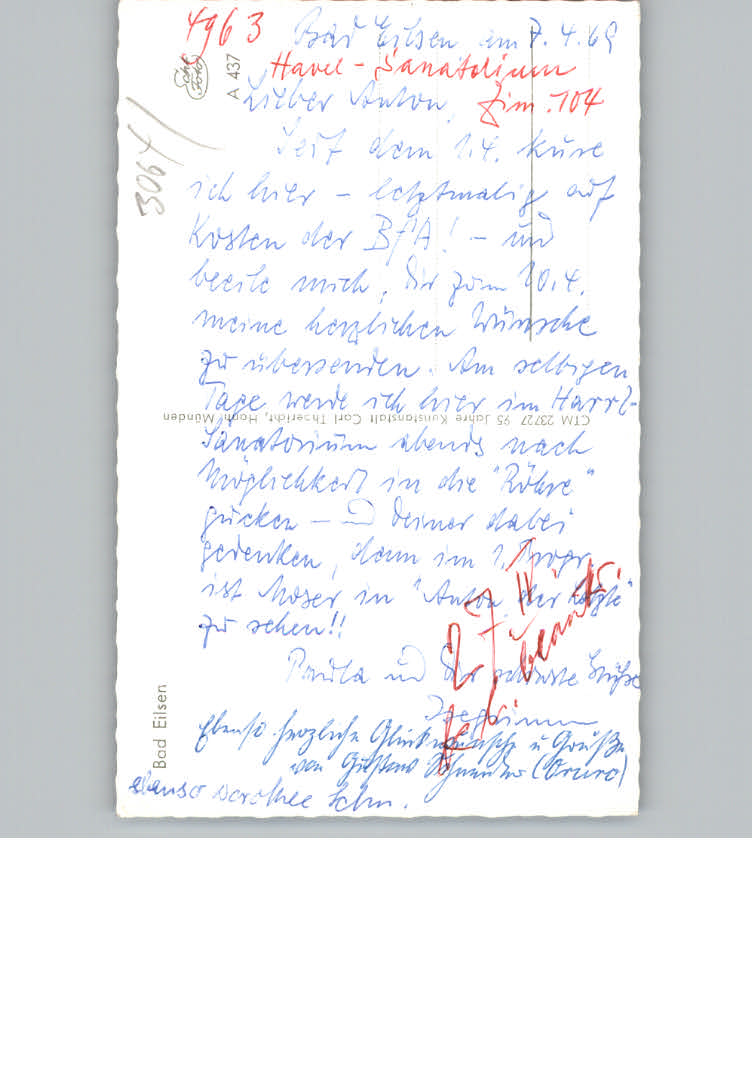 4963
Bad Eilsen am 7.4.69
Echt Foto
A 437
Havel-Sanatorium
Zim. 104
3064/
Lieber Anton,
Seit dem 1.4. kure
ich hier – letztmalig auf
Kosten der BfA! – und
beeile mich, Dir zum 10.4.
meine herzlichen Wünsche
zu übersenden. Am selbigen
Tage werde ich hier im Harrl-
CTM 23727 95 Jahre Kunstanstalt Carl Thoericht, Hann Münden
Sanatorium abends nach
Möglichkeit in die "Röhre"
gucken – und Deiner dabei
gedenken, denn im 1. Progr.
ist Moser in "Anton der Letzte"
zu sehen!!
beantw.
Paula und Dir schönste Grüße
Isegrimm
Bad Eilsen
Ebenso herzliche Glückwünsche u Grüße
von Gustav Schneider
ebenso Dorothee Schn.